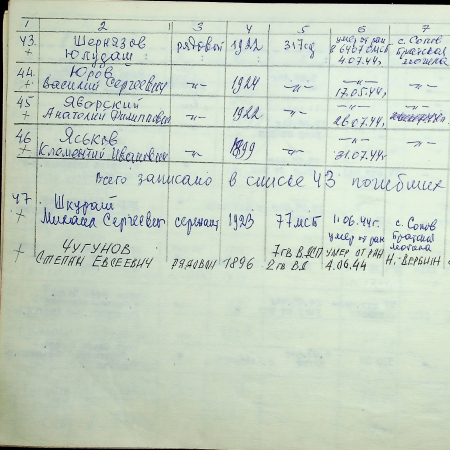 1 2 3 4 5 6 7
43. Шерназов рядовой 1922 31 гсд умер от ран с. Сопов
+ Юлудаш 4.07.44г. Братская могила
44. Юров
+ Василий Сергеевич –"– 1924 –"– –"– 17.05.44г. –"–
45 Яворский
+ Анатолий Филиппович –"– 1922 –"– –"– 26.07.44г.
46 Яськов
+ Климентий Иванович –"– 1899 –"– –"– 21.07.44г. –"–
Всего записано в списке 43 погибших
47 Шкурат
+ Михаил Сергеевич сержант 1923 77 мсб 11.06.44г. с. Сопов
умер от ран Братская могила
+ Чугунов 7 гв. ВДСП умер от ран
Степан Евсеевич рядовой 1896 2 гв. ВД 4.06.44 Н.-Вербиж